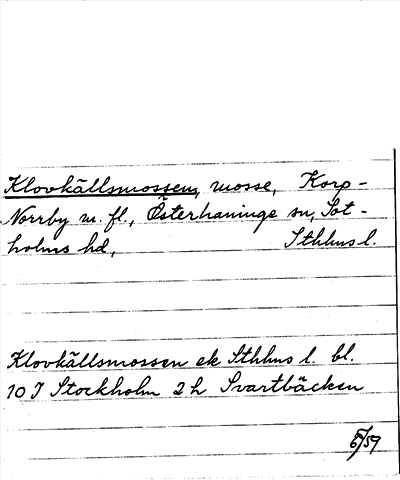 Klovkällsmossen, mosse, Korp-
Norrby m. fl., Österhaninge sn, Sot-
holms hd, Sthlms l.
Klovkällsmossen ek Sthlms l. bl.
10 I Stockholm 2 h Svartbäcken
5/59